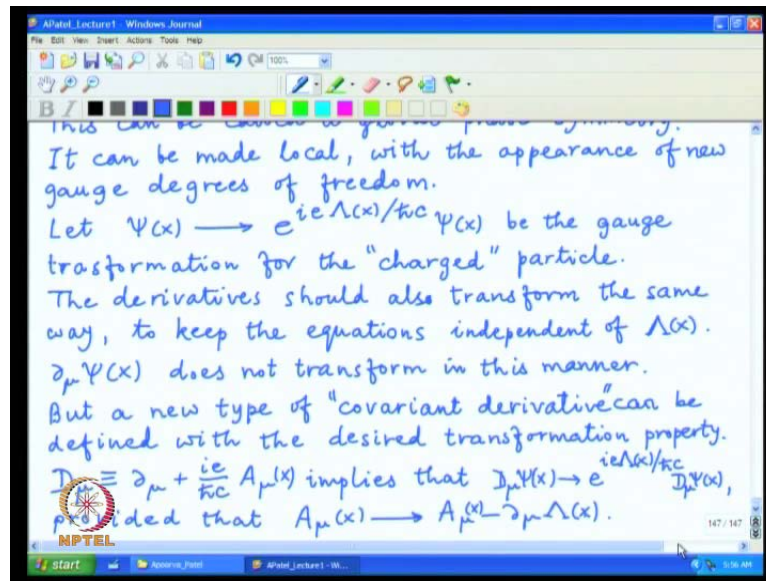 APatel_Lecture1 - Windows Journal
File Edit View Insert Actions Tools Help
100%
B I
This can be a global phase symmetry.
It can be made local, with the appearance of new
gauge degrees of freedom.
Let Ψ(x) ⟶ e^{ieΛ(x)/ħc} Ψ(x) be the gauge
trasformation for the "charged" particle.
The derivatives should also transform the same
way, to keep the equations independent of Λ(x).
∂_μ Ψ(x) does not transform in this manner.
But a new type of "covariant derivative" can be
defined with the desired transformation property.
D_μ ≡ ∂_μ + ie/ħc A_μ(x) implies that D_μΨ(x) → e^{ieΛ(x)/ħc} D_μΨ(x),
provided that A_μ(x) ⟶ A_μ(x) - ∂_μ Λ(x).
147 / 147
NPTEL
start Apoorva_Patel APatel_Lecture1 - Wi... 5:56 AM